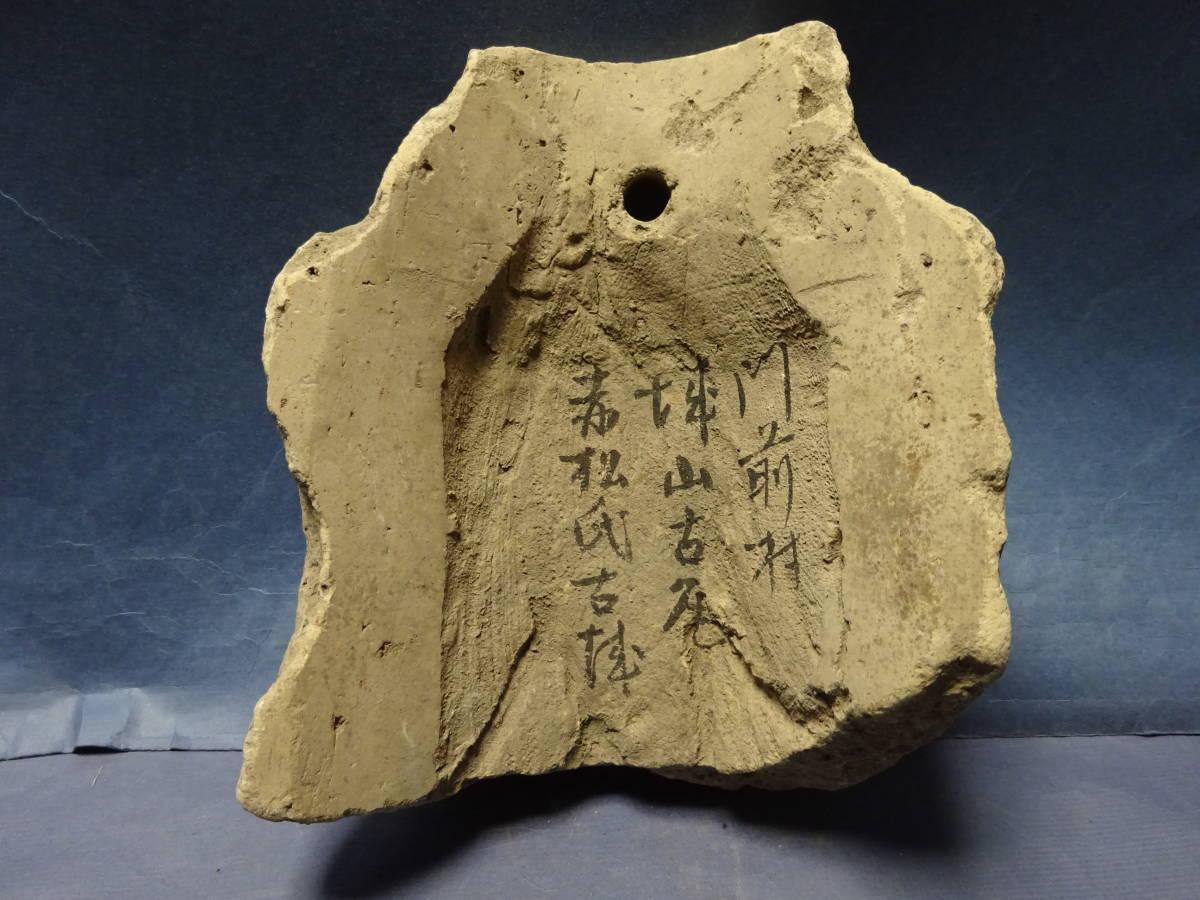 門前村
城山古瓦
赤松氏古城